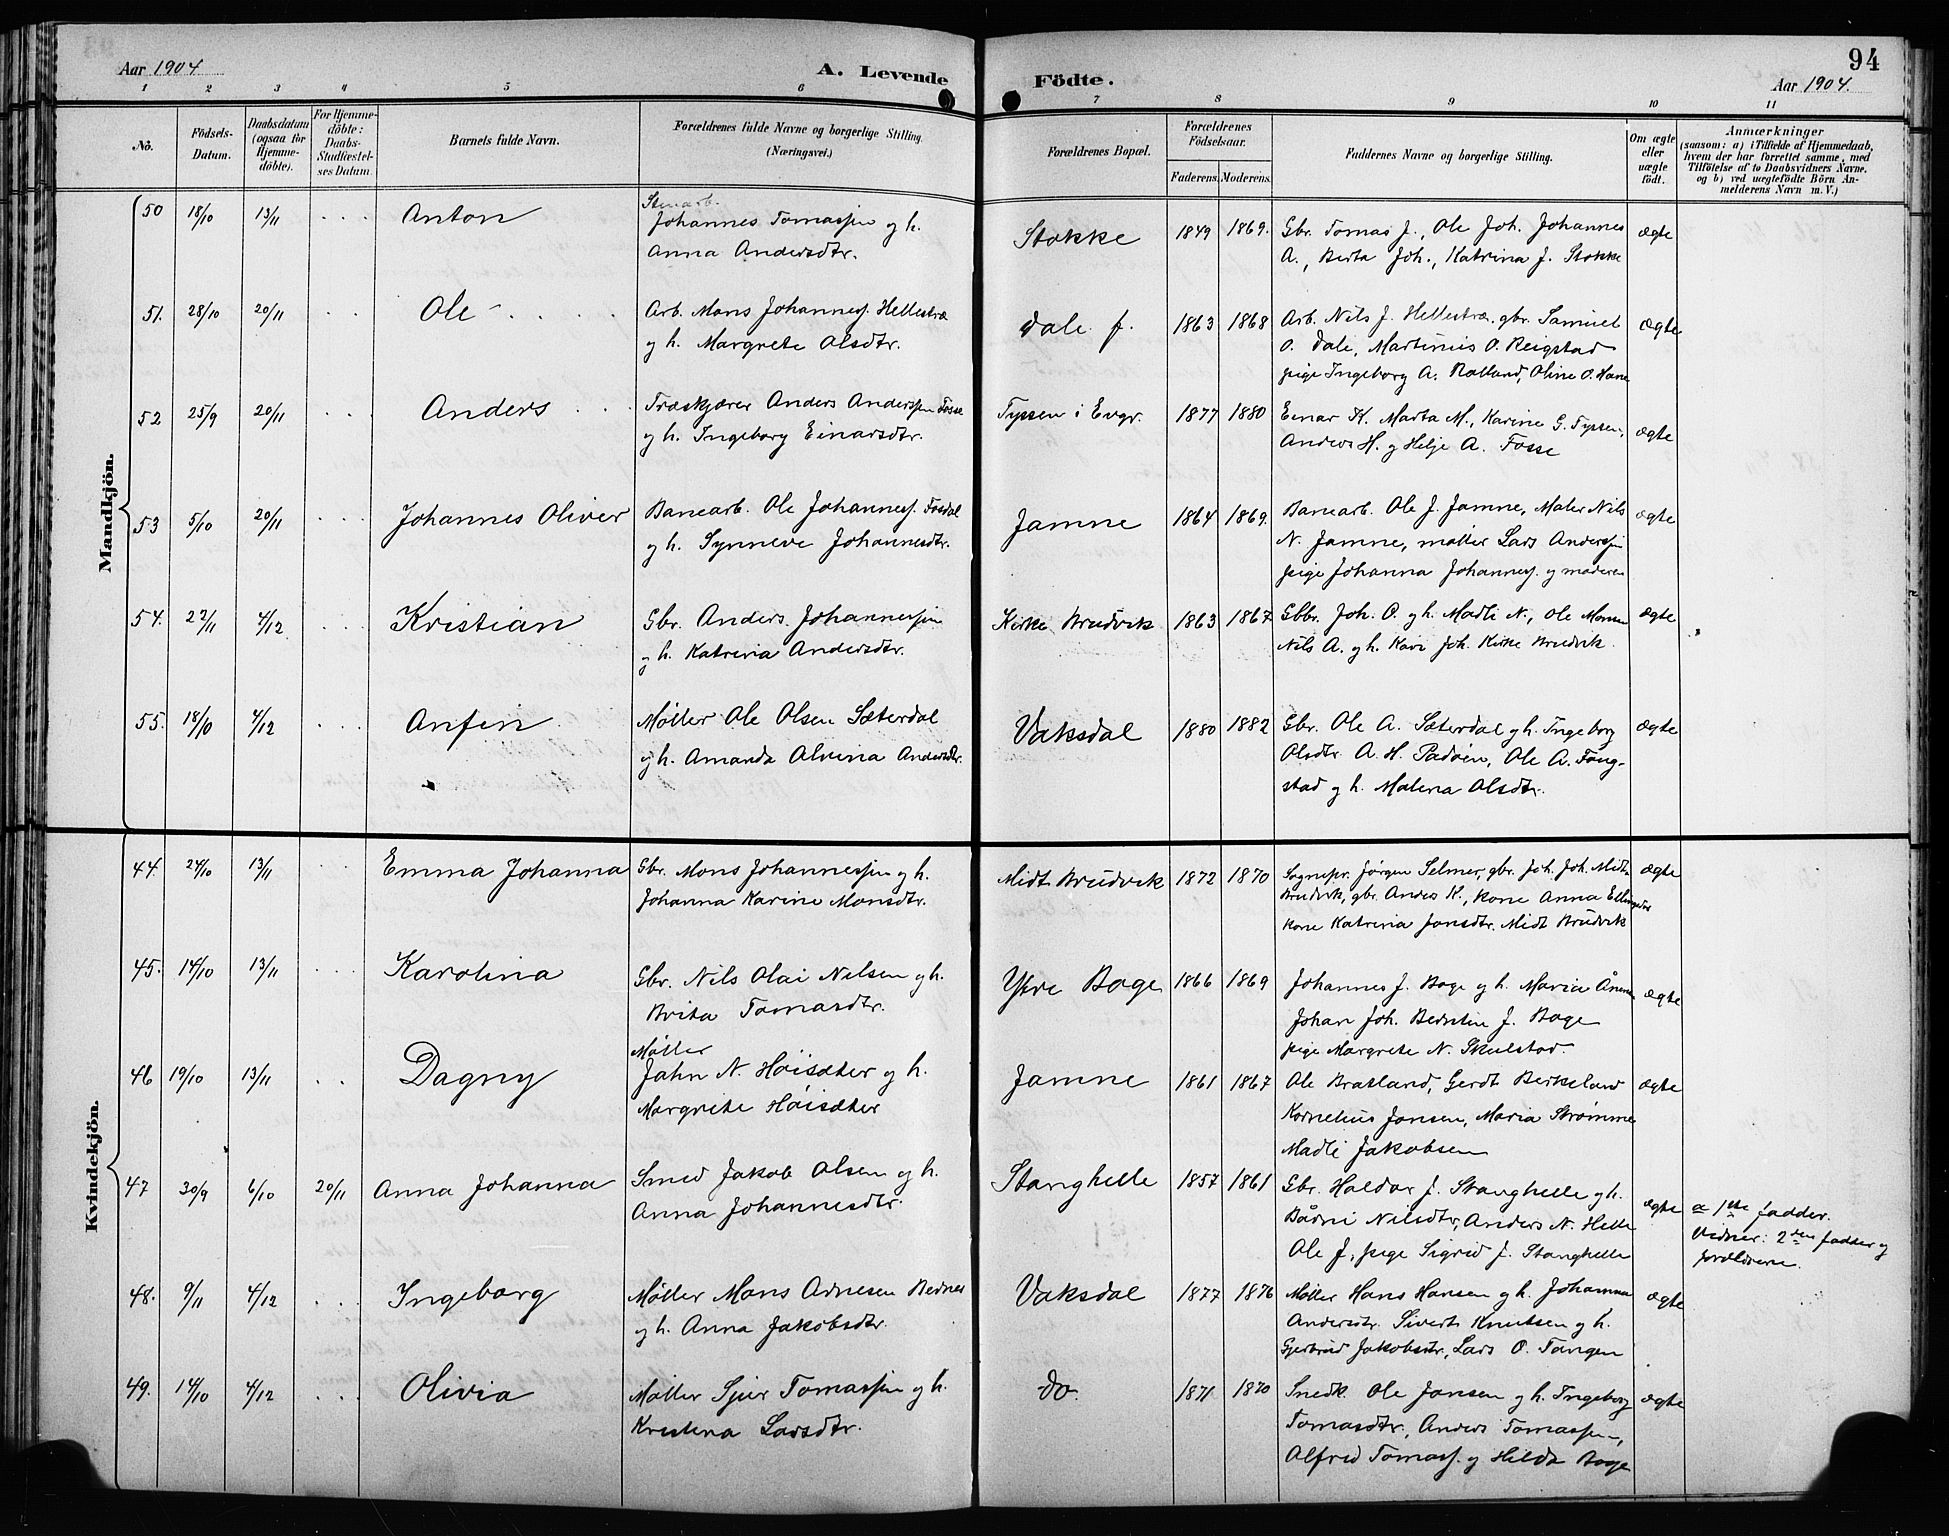 94
Aar 1904
A. Levende
Födte.
Aar 1904.
1 2 3 4 5 6 7 8 9 10 11
No.
Födsels-
Datum.
Daabsdatum
(ogsaa for
Hjemme-
döbte).
For Hjemme-
döbte:
Daabs-
Stadfæstel-
ses Datum.
Barnets fulde Navn.
Forældrenes fulde Navne og borgerlige Stilling.
(Næringsvei.)
Forældrenes Bopæl.
Forældrenes
Födselsaar.
Faderens. Moderens.
Faddernes Navne og borgerlige Stilling.
Om ægte
eller
uægte
födt.
Anmærkninger
(saasom: a) i Tilfælde af Hjemmedaab,
hvem der har forrettet samme, med
Tilföielse af to Daabsvidners Navne,
og b) ved uægtefödte Börn An-
melderens Navn m. V.)
Mandkjön.
50 18/10 13/11 Anton
Stenarb.
Johannes Tomassen og h.
Anna Andersdtr.
Stokke 1849 1869.
Gbr. Tomas J., Ole Joh. Johannes
A., Berta Joh., Katrina J. Stokke
ægte
51. 28/10 20/11 Ole
Arb. Mons Johanness. Hellestræ
og h. Margrete Olsdtr.
Dale f. 1863 1868
Arb. Nils J. Hellestræ. gbr. Samuel
O. Dale, Martinius O. Reigstad
pige Ingeborg A. Rolland, Oline O. Hane
ægte
52 25/9 20/11 Anders
Træskjærer Anders Anderssen Fosse
og h. Ingeborg Einarsdtr.
Tyssen i Evgr. 1877 1880
Einar K. Marta M., Karine G. Tyssen,
Anders H. og Helje A. Fosse
ægte
53 5/10 20/11 Johannes Oliver
Banearb. Ole Johanness. Fosdal
og h. Synneve Johannesdtr.
Jamne 1864 1869.
Banearb. Ole J. Jamne, Maler Nils
N. Jamne, møller Lars Anderssen
pige Johanna Johanness. og moderen
ægte
54. 22/11 4/12 Kristian
Gbr. Anders Johannessen
og h. Katrina Andersdtr.
Kirke Brudvik 1863 1867
Gbr. Joh. O. og h. Madli N., Ole Monsen
Nils A. og h. Kari Joh. Kirke Brudvik.
ægte
55. 18/10 4/12 Anfin
Møller Ole Olsen Sæterdal
og h. Amanda Alvina Andersdtr.
Vaksdal 1880 1882
Gbr. Ole A. Sæterdal og h. Ingeborg
Olsdtr. A. H. Padøen, Ole A. Foug-
stad og h. Malena Olsdtr.
ægte
Kvindekjön.
44. 24/10 13/11 Emma Johanna
Gbr. Mons Johannessen og h.
Johanna Karine Monsdtr.
Midt Brudvik 1872 1870
Sognepr. Jørgen Selmer, gbr. Joh. Joh. Midt-
Brudvik, gbr. Anders K., kone Anna Ellingsdtr
kone Katrina Jonsdtr. Midt Brudvik
ægte
45. 14/10 13/11 Karolina
Gbr. Nils Olai Nilsen og h.
Brita Tomasdtr.
Ytre Boge 1866 1869
Johannes J. Boge og h. Maria
Johan Joh. Berntin J. Boge
pige Margrete N. Skulstad.
ægte
46 19/10 13/11 Dagny
Møller
John N. Høisæter og h.
Margrete Høisæter
Jamne 1861 1867
Ole Bratland, Gerdt Berkeland
Kornelius Jansen, Maria Strømme
Madli Jakobsen
ægte
47 30/9 6/10 20/11 Anna Johanna
Smed Jakob Olsen og h.
Anna Johannesdtr.
Stanghelle 1857 1861
Gbr. Haldor J. Stanghelle og h.
Bårni Nilsdtr, Anders N. Helle
Ole J., pige Sigrid J. Stanghelle
ægte
a 1ste fadder.
Vidner: 2den fadder og
forældrene.
48. 9/11 4/12 Ingeborg
Møller Mons Arnesen Bernes
og h. Anna Jakobsdtr.
Vaksdal 1877 1876
Møller Hans Hansen og h. Johanna
Andersdtr. Sivert Knutsen og h.
Gjertrud Jakobsdtr, Lars O. Tangen
ægte
49. 14/10 4/12 Olivia
Møller Sjur Tomassen og h.
Kristina Larsdtr.
do. 1871 1870
Snedk. Ole Jansen og h. Ingeborg
Tomasdtr., Anders Tomassen,
Alfred Tomass. og Hilda Boge
ægte